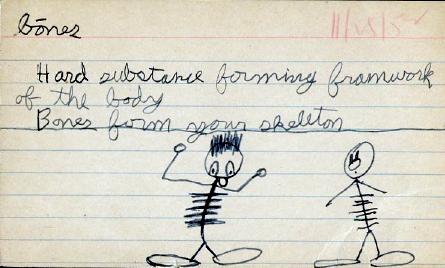 bōnes
Hard substance forming framwork
of the body
Bones form your skeleton